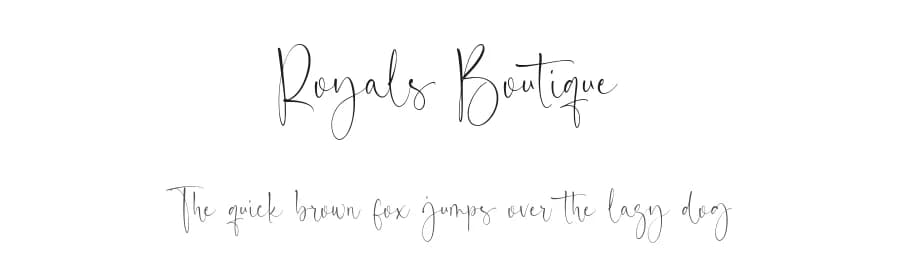 Royals Boutique
The quick brown fox jumps over the lazy dog